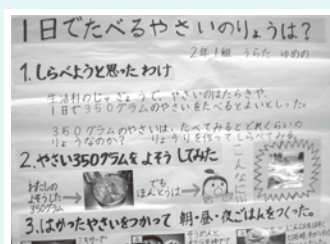 1日でたべるやさいのりょうは？
2年1組 うらた ゆめの
1.しらべようと思ったわけ
生活科のじゅぎょうで、やさいのはたらきや、
1日で350グラムのやさいをたべるとよいとしった。
350グラムのやさいは、たべてみるとどれくらいの
りょうなのか？ りょうりを作ってしらべてみる。
2.やさい350グラムを よそう してみた
わたしの
よそうした
350グラム
でも
ほんとうは
こんなに
3.はかったやさいをつかって 朝・昼・夜ごはんをつくった。